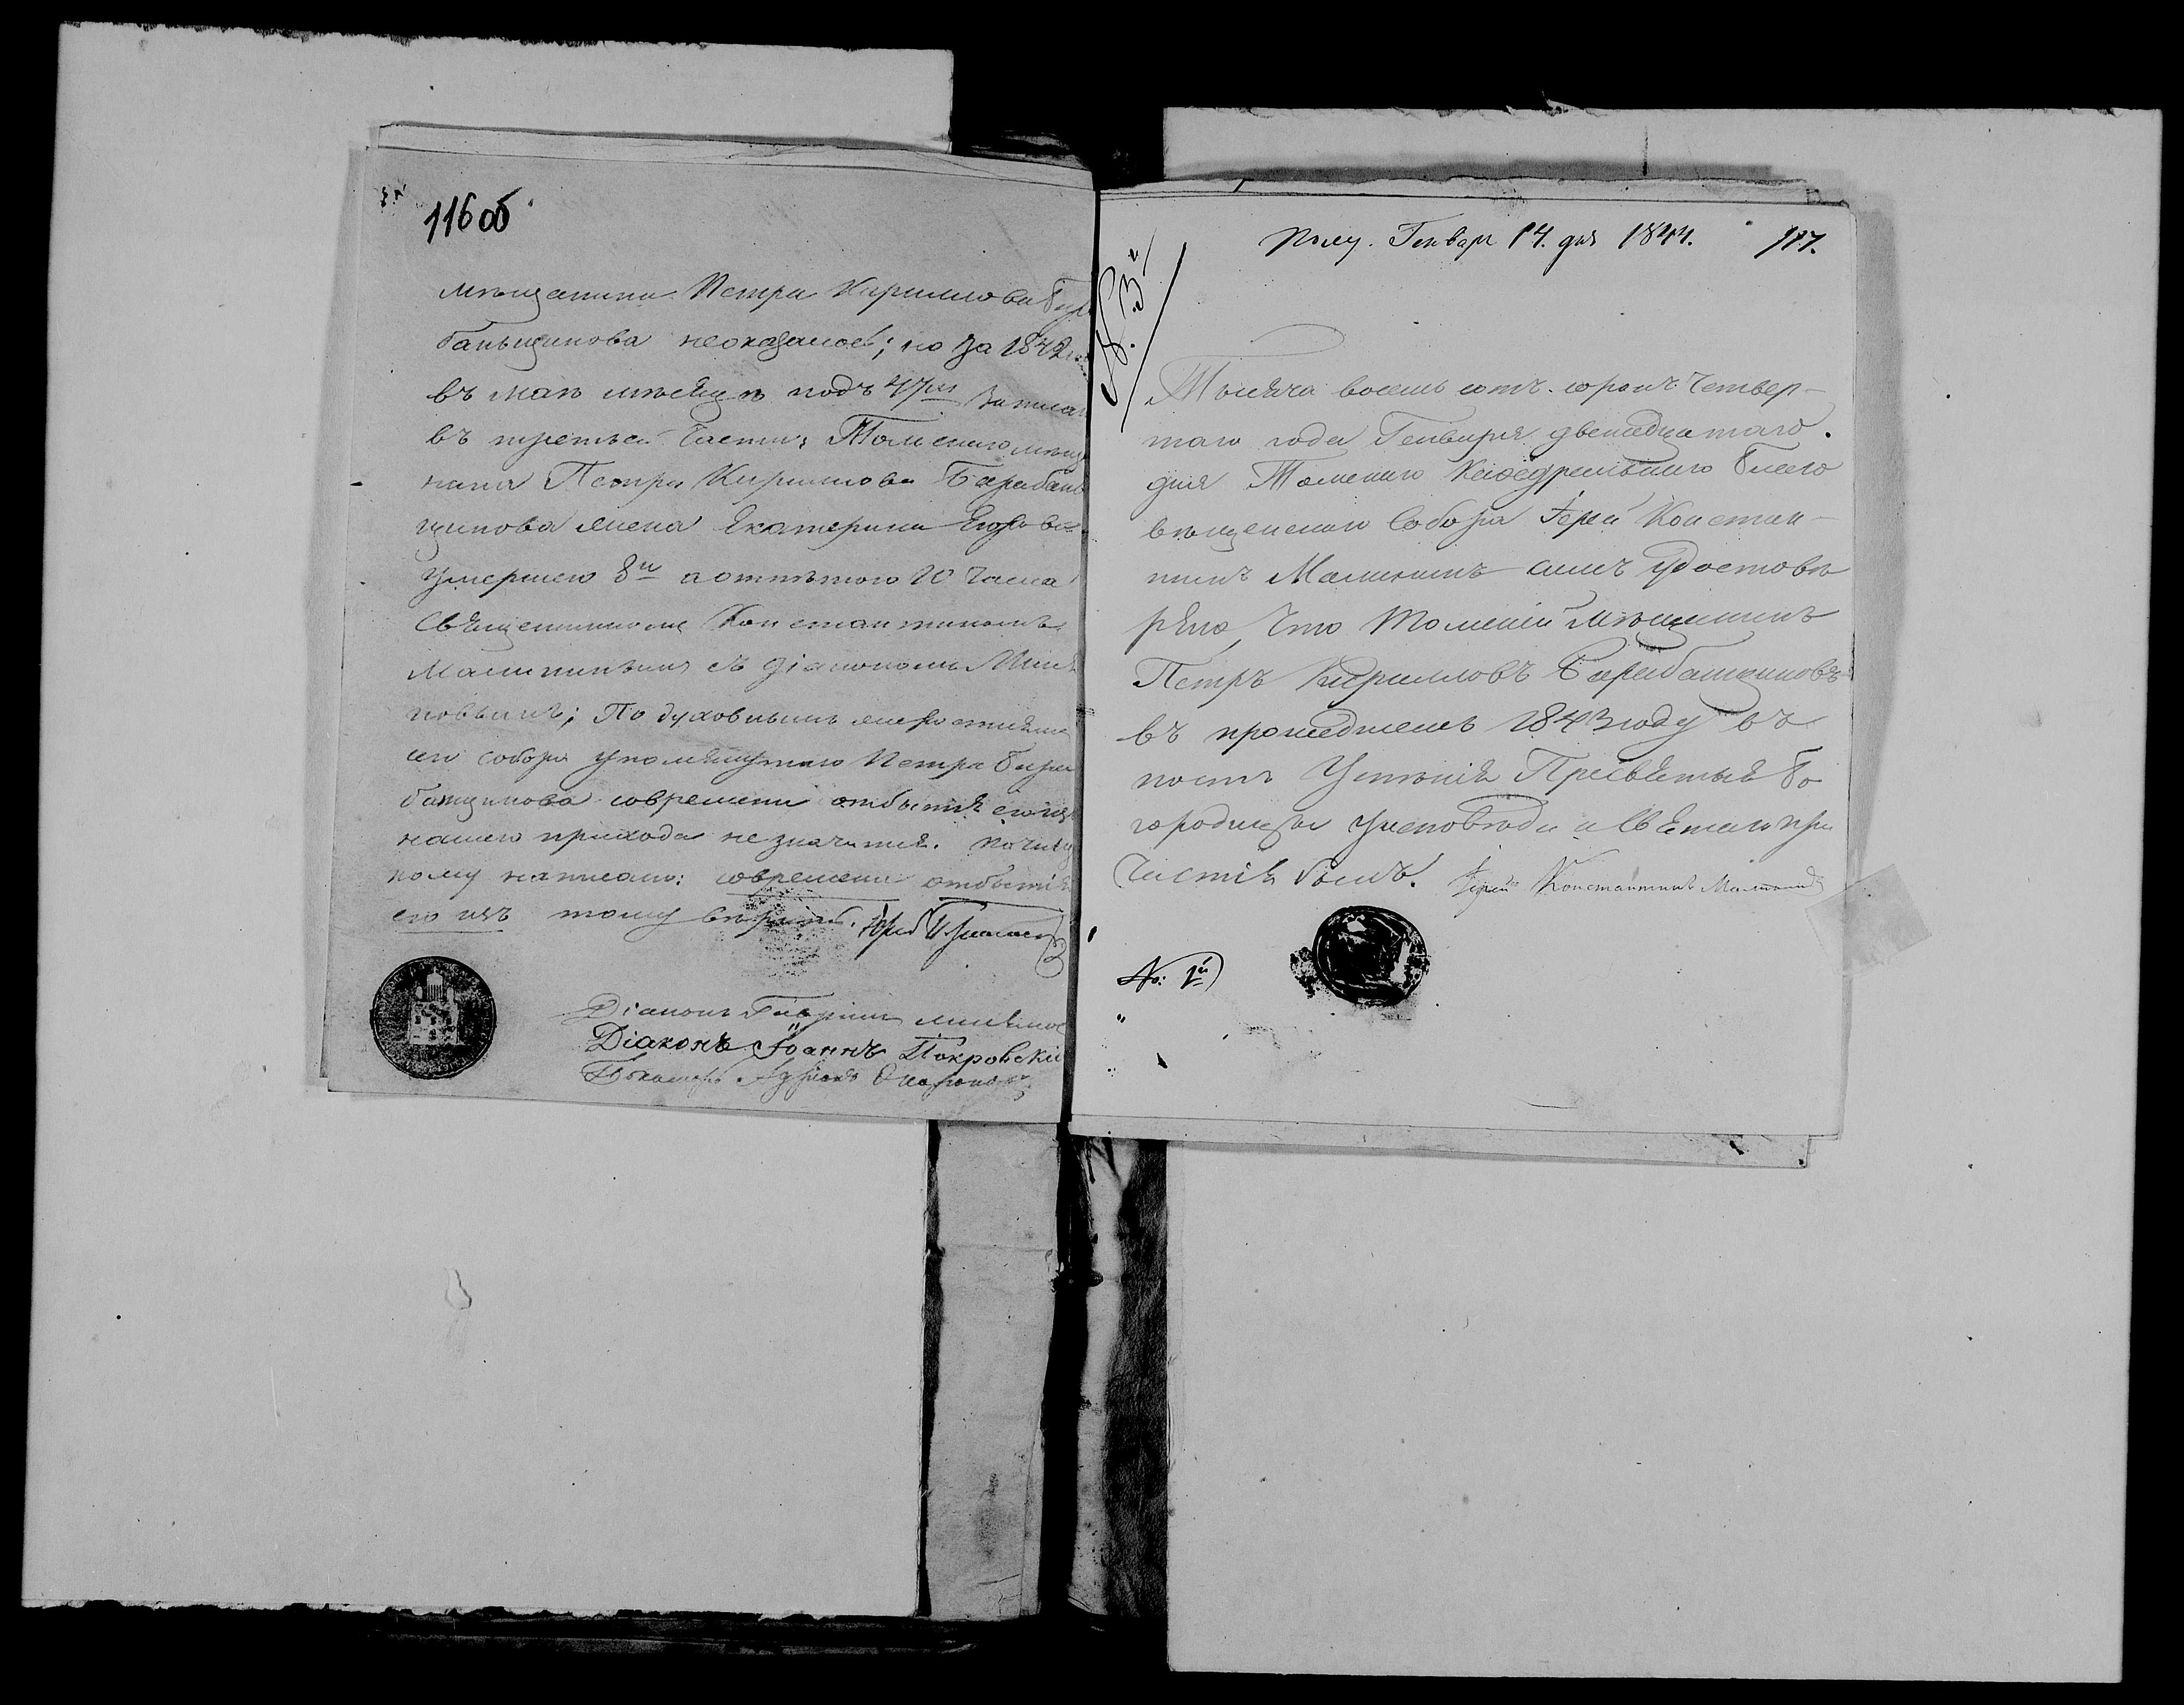 116 об
мѣщанина Петра Кириллова Бара
баньщикова неоказалось; но За 1842
въ маѣ мѣсяцѣ подъ 47мъ записан
въ третьей части, Томскаго мѣща
нина Петра Кириллова Барабань
щикова жена Екатерина Егорова
умершею 8го а отпѣтою 10 числа
Священникомъ Константиномъ
Малининымъ съ Діакономъ
новымъ; По духовнымъ росписямъ
его собора упомянутаго Петра Бара
банщикова современи отбытія его изъ
нашего прихода не значится. По чищен
ному написано: современи отбытія
его изъ тому вѣрить. Іерей
Діаконъ Гавріилъ
Діаконъ Іоаннъ Покровскій
Пономарь
Полу. Генваря 14. дня 1844. 117.
№. 3й
Тысяча восемь сотъ сорокъ четвер-
таго года Генваря двенадцатаго
дня Томскаго Каѳедральнаго Благо
вѣщенскаго Собора Іерей Констан-
тинъ Малининъ симъ удостовѣ
ряю, что Томскій мѣщанинъ
Петръ Кирилловъ Барабанщиковъ
въ прошедшемъ 1843 году въ
постъ Успѣнія Пресвятыя Бо
городицы уисповѣди и Святаго при
частія былъ. Іерей Константинъ Малининъ
№: 1й